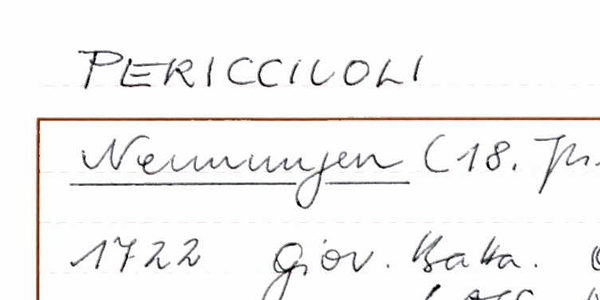 PERICCIUOLI
Nennungen (18. Jh.
1722 Giov. Batta.